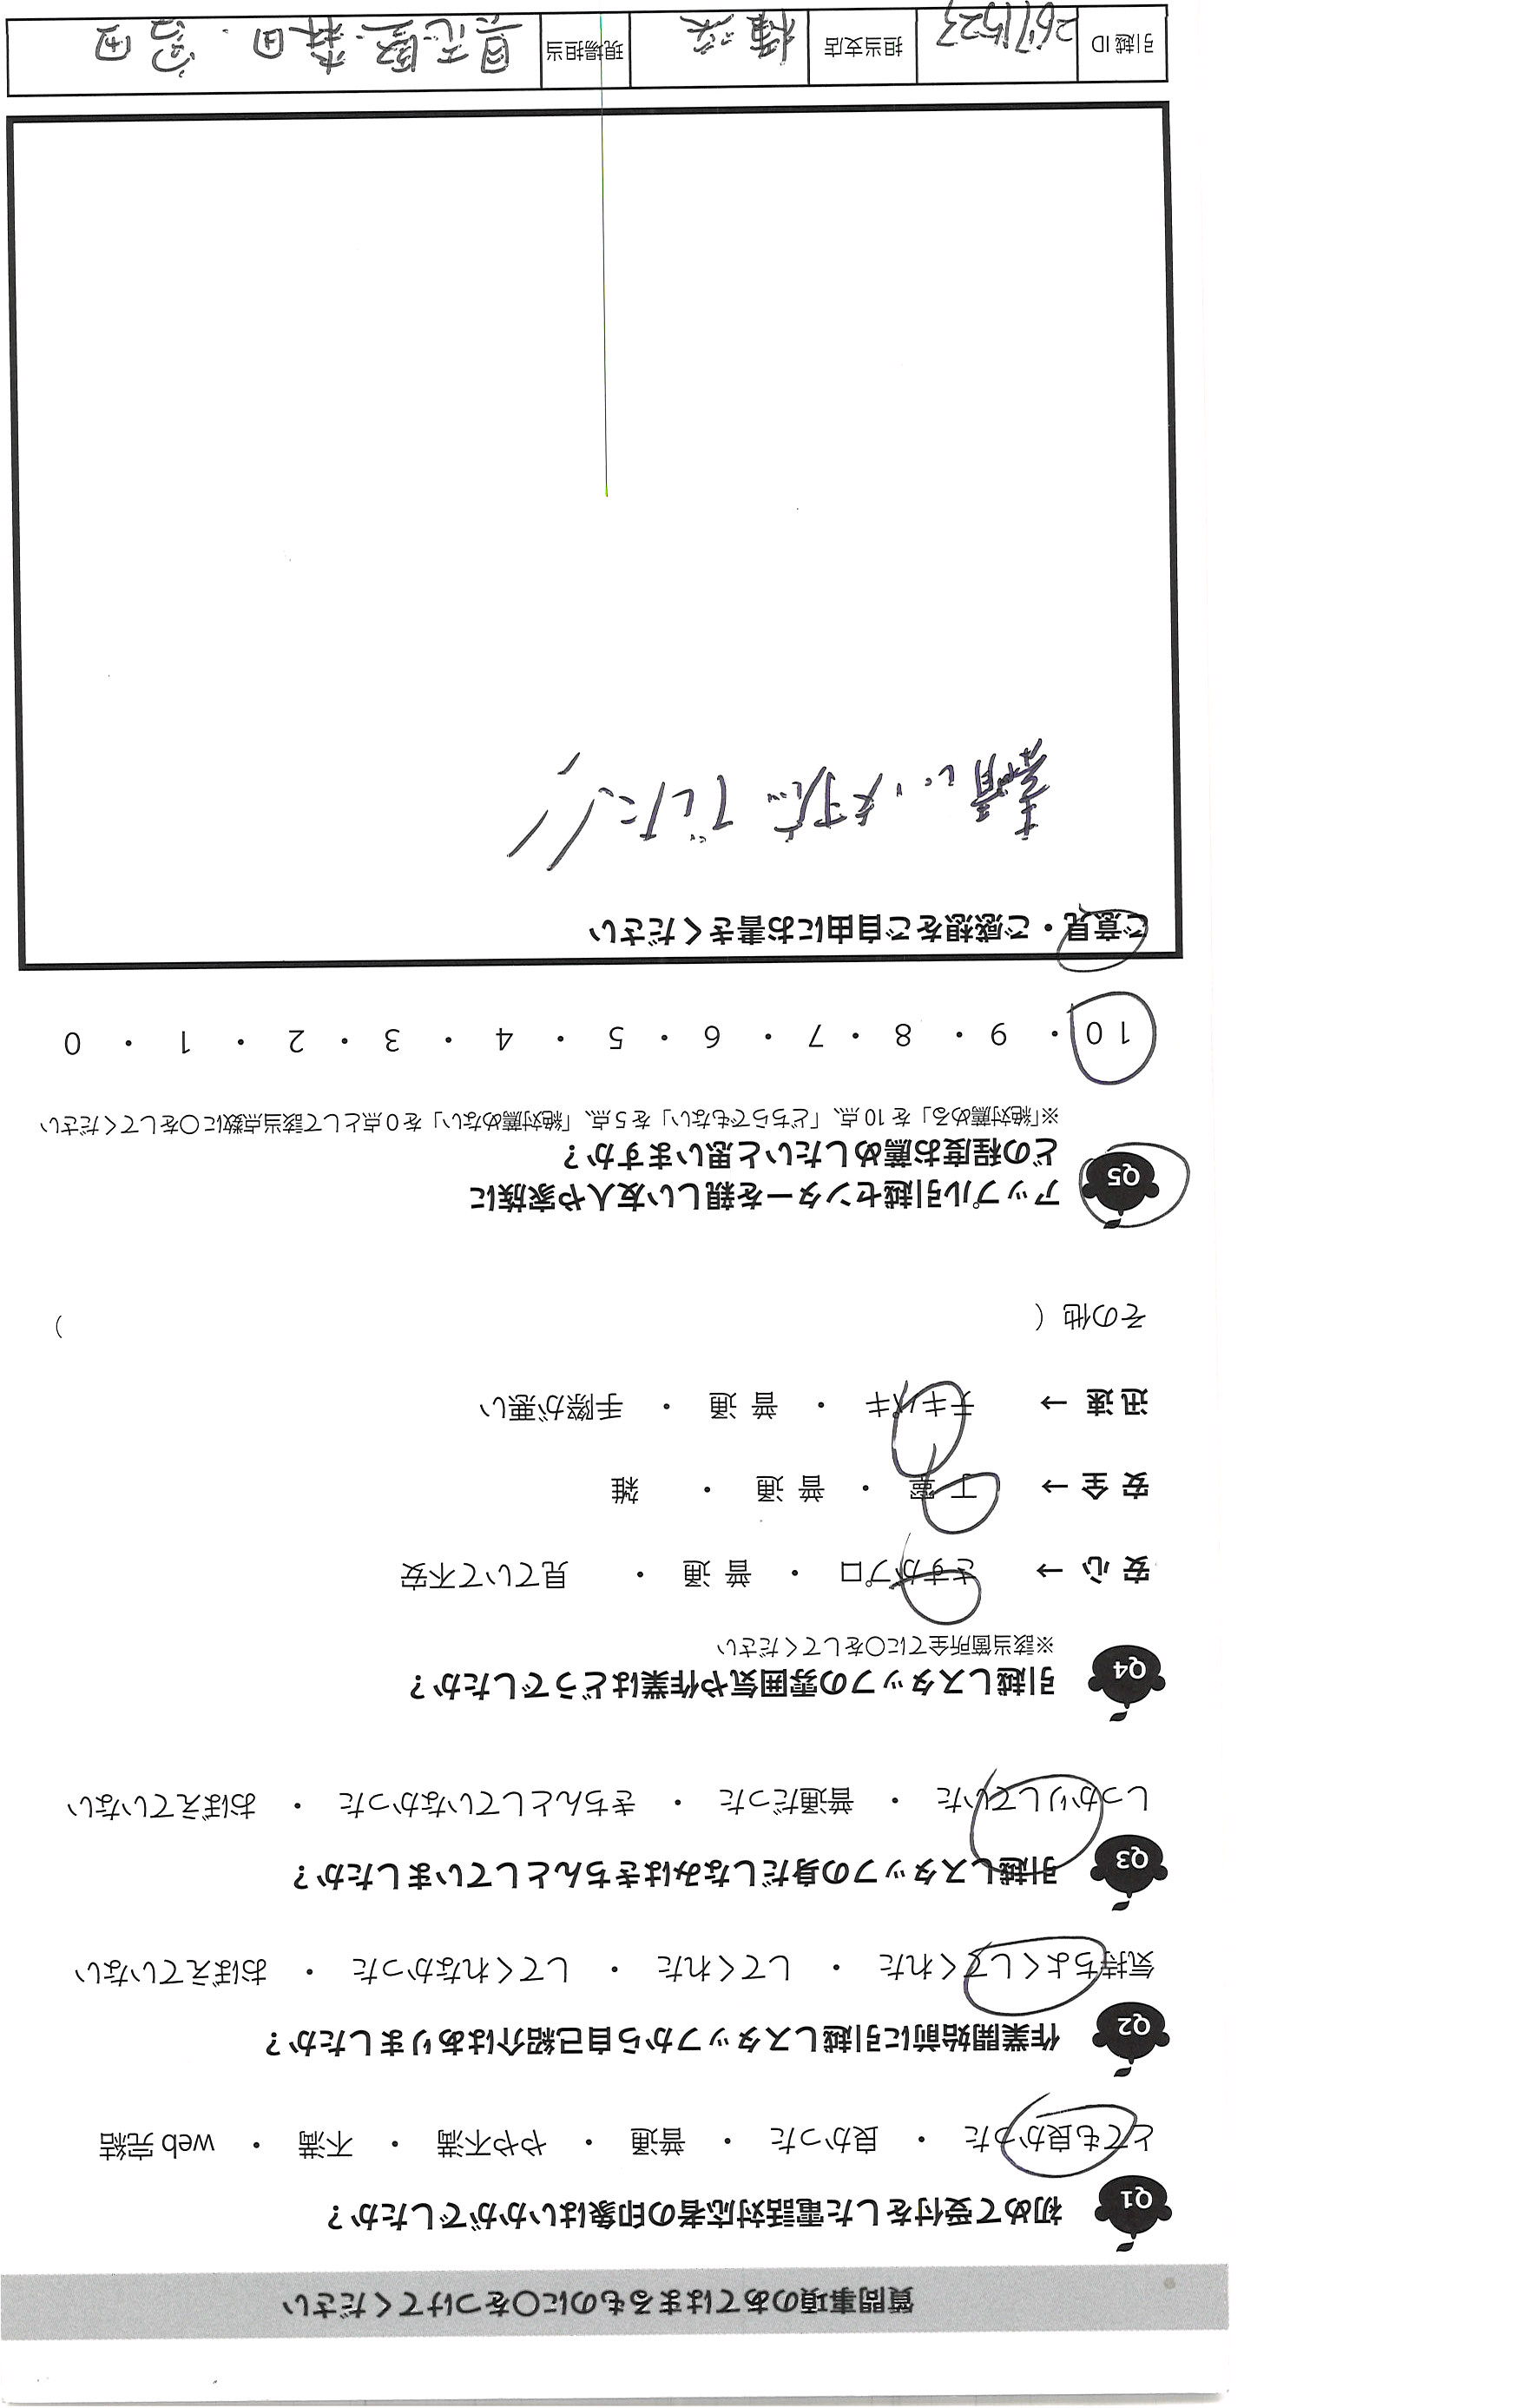 質問事項のあてはまるものに〇をつけてください
Q1 初めて受付をした電話対応者の印象はいかがでしたか？
とても良かった ・ 良かった ・ 普通 ・ やや不満 ・ 不満 ・ web 完結
Q2 作業開始前に引越しスタッフから自己紹介はありましたか？
気持ちよくしてくれた ・ してくれた ・ してくれなかった ・ おぼえていない
Q3 引越しスタッフの身だしなみはきちんとしていましたか？
しっかりしていた ・ 普通だった ・ きちんとしていなかった ・ おぼえていない
Q4 引越しスタッフの雰囲気や作業はどうでしたか？
※該当箇所全てに〇をしてください
安 心 → さすがプロ ・ 普 通 ・ 見ていて不安
安 全 → 丁 寧 ・ 普 通 ・ 雑
迅 速 → テキパキ ・ 普 通 ・ 手際が悪い
その他 （ ）
Q5 アップル引越センターを親しい友人や家族に
どの程度お薦めしたいと思いますか？
※「絶対薦める」を 10 点、「どちらでもない」を 5 点、「絶対薦めない」を 0 点として該当点数に〇をしてください
10 ・ 9 ・ 8 ・ 7 ・ 6 ・ 5 ・ 4 ・ 3 ・ 2 ・ 1 ・ 0
ご意見・ご感想をご自由にお書きください
素晴しい 対応 でした
引越 ID 2671523 担当支店 現場担当 森田 . 富田